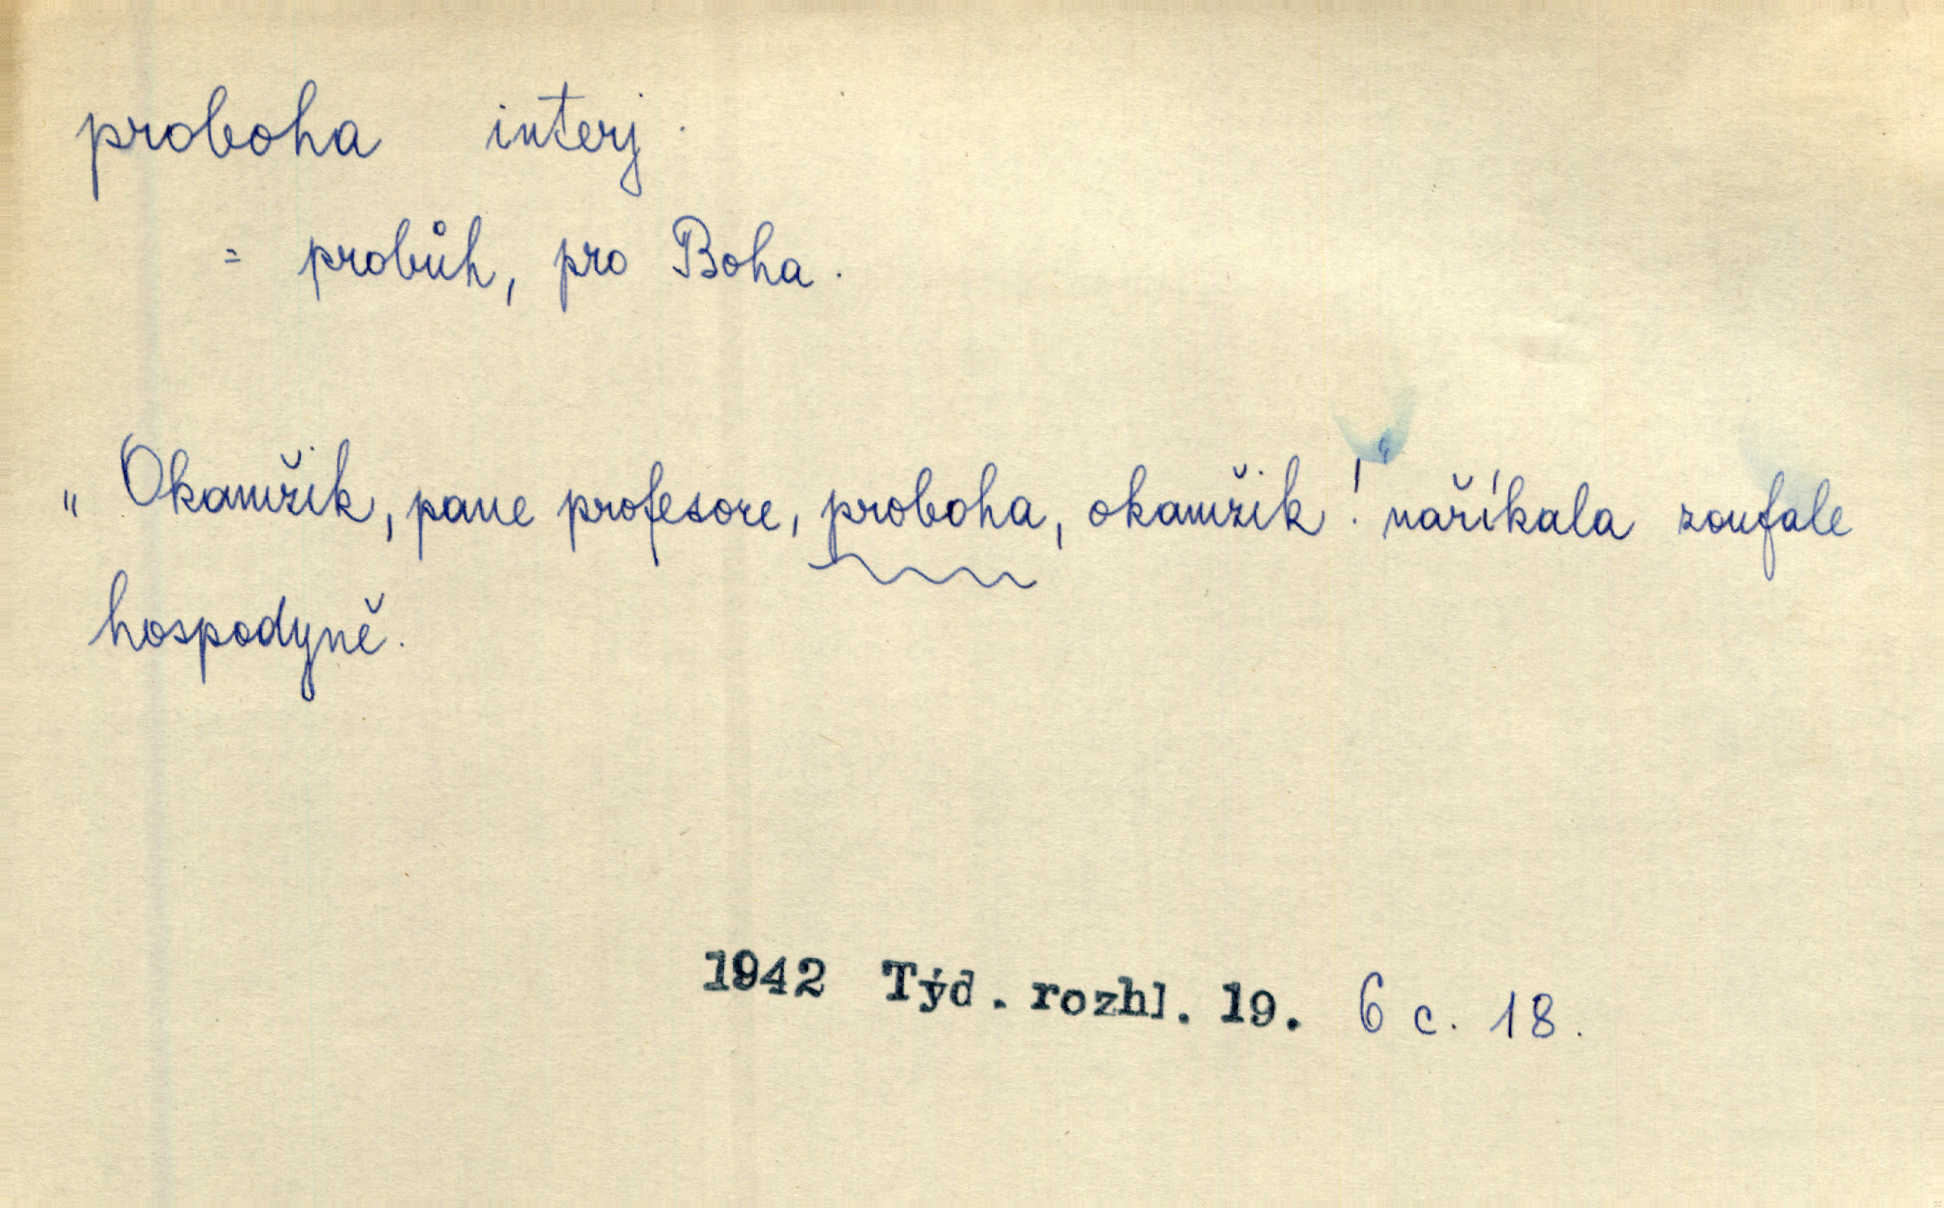 proboha interj.
= probůh, pro Boha.
„Okamžik, pane profesore, proboha, okamžik!“ naříkala zoufale
hospodyně.
1942 Týd. rozhl. 19. 6 c. 18.